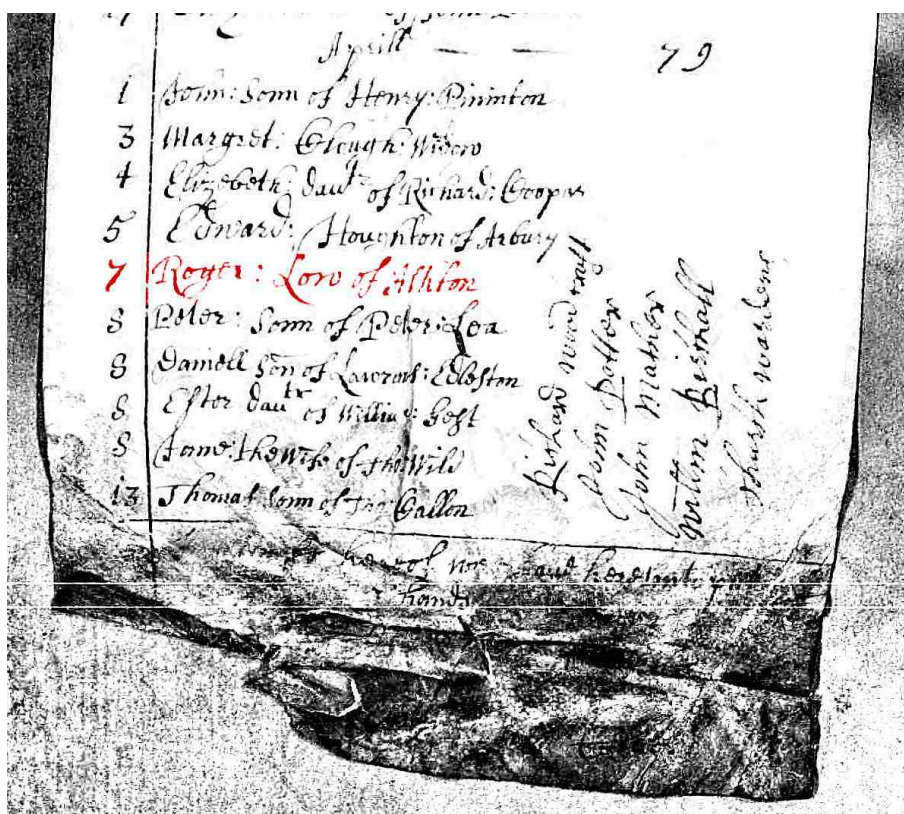 Aprill
79
1 John: Sonn of Henry: Pininton
3 Margret: Clough: Widow
4 Elizebeth: daut^r of Richard: Cooper
5 Edward: Houghton of Arbury
7 Roger: Low of Ashton
8 Peter: Sonn of Peter: Lea
8 Daniell Sonn of Lawrenc: Edleston
8 Ester daut^r of William: Gest
8 Jane: the wife of Tho: Wild
13 Thomas Sonn of Gallon
hereof wee have hereunto
hands
Richard
John Potter
John Mather
William
Church wardens